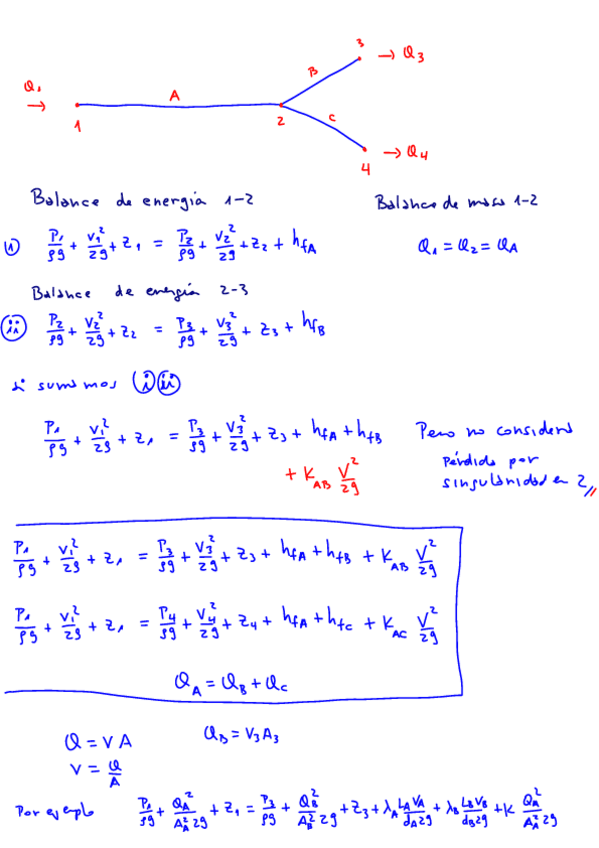 3
→ Q3
B
Q1
→
A
C
1
2
→ Q4
4
Balance de energía 1-2
Balance de masa 1-2
i) P1/ρg + V1²/2g + z1 = P2/ρg + V2²/2g + z2 + hfA
Q1 = Q2 = QA
Balance de energía 2-3
ii) P2/ρg + V2²/2g + z2 = P3/ρg + V3²/2g + z3 + hfB
si sumamos i ii
P1/ρg + V1²/2g + z1 = P3/ρg + V3²/2g + z3 + hfA + hfB
Pero no considera
pérdida por
singularidad en 2
+ KAB V²/2g
P1/ρg + V1²/2g + z1 = P3/ρg + V3²/2g + z3 + hfA + hfB + KAB V²/2g
P1/ρg + V1²/2g + z1 = P4/ρg + V4²/2g + z4 + hfA + hfC + KAC V²/2g
QA = QB + QC
Q = V A
QB = V3 A3
V = Q/A
Por ejemplo
P1/ρg + QA²/AA² 2g + z1 = P3/ρg + QB²/AB² 2g + z3 + λA LA VA/dA 2g + λB LB VB/dB 2g + K QA²/AA² 2g